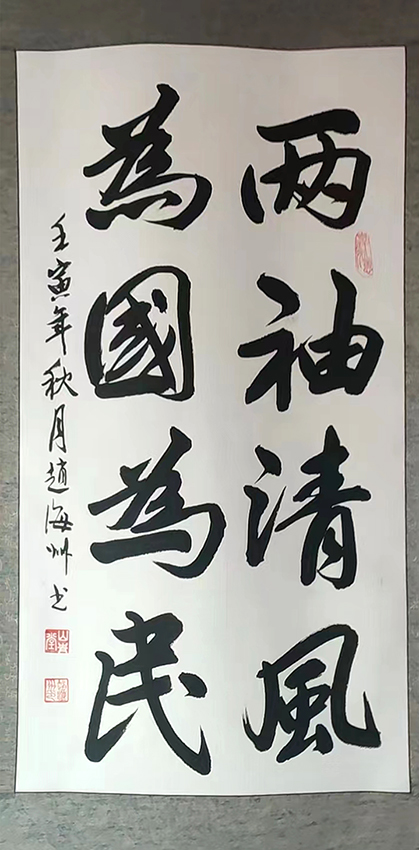 两袖清風
為國為民
壬寅年秋月趙海州书